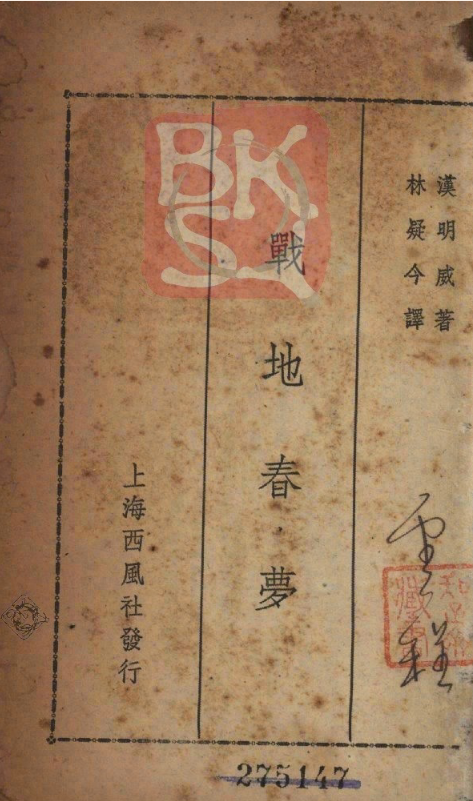 漢明威著
林疑今譯
戰地春夢
上海西風社發行
BK
SY
275147